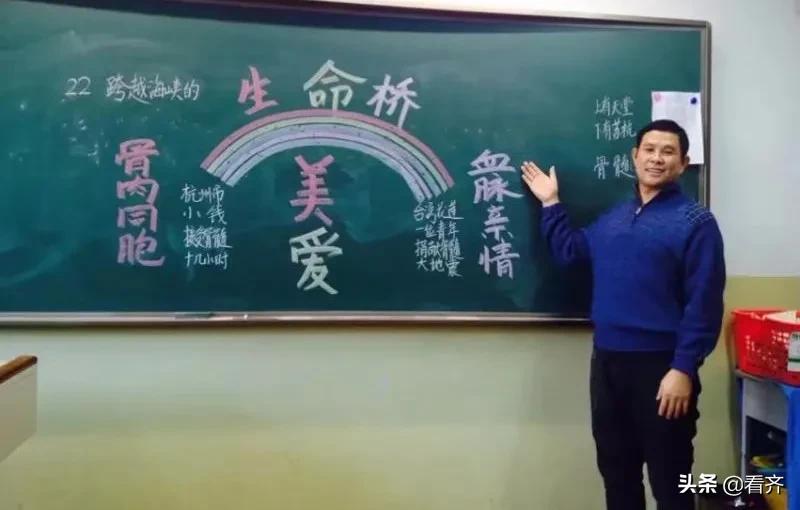 22 跨越海峡的
生命桥
骨肉同胞
杭州市
小钱
接受骨髓
十几小时
美爱
台湾花莲
一位青年
捐献骨髓
大地震
血脉亲情
上有天堂
下有苏杭
骨髓
头条 @看齐